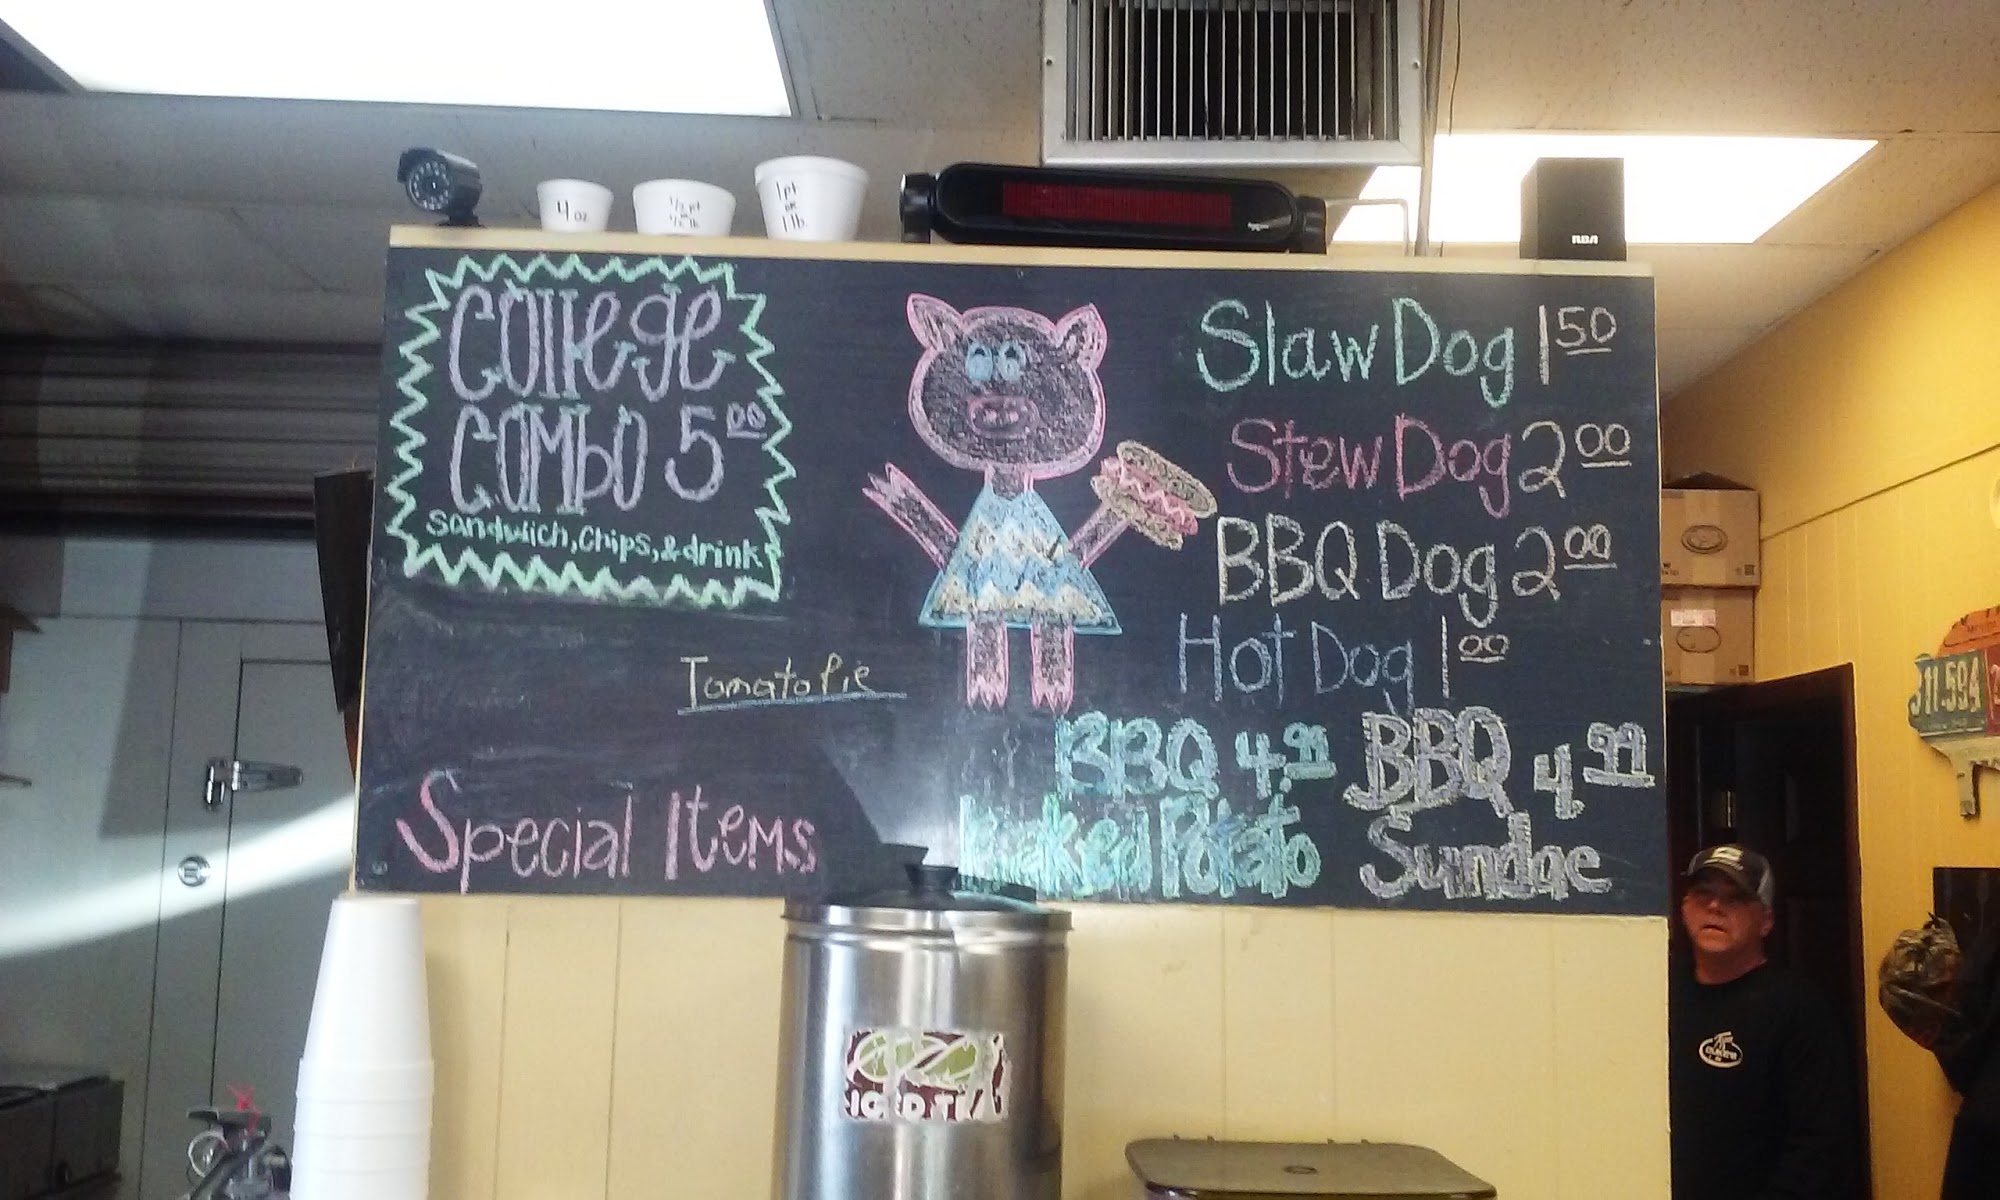 4 oz
1/2 pt
or
1/2 lb
1 pt
or
1 lb.
RCA
College
Combo 5 00
Sandwich, Chips, & drink
Slaw Dog 1 50
Stew Dog 2 00
BBQ Dog 2 00
Hot Dog 1 00
Tomato Pie
Special Items
BBQ 4.99
Baked Potato
BBQ 4 99
Sundae
311-594
ICED TEA